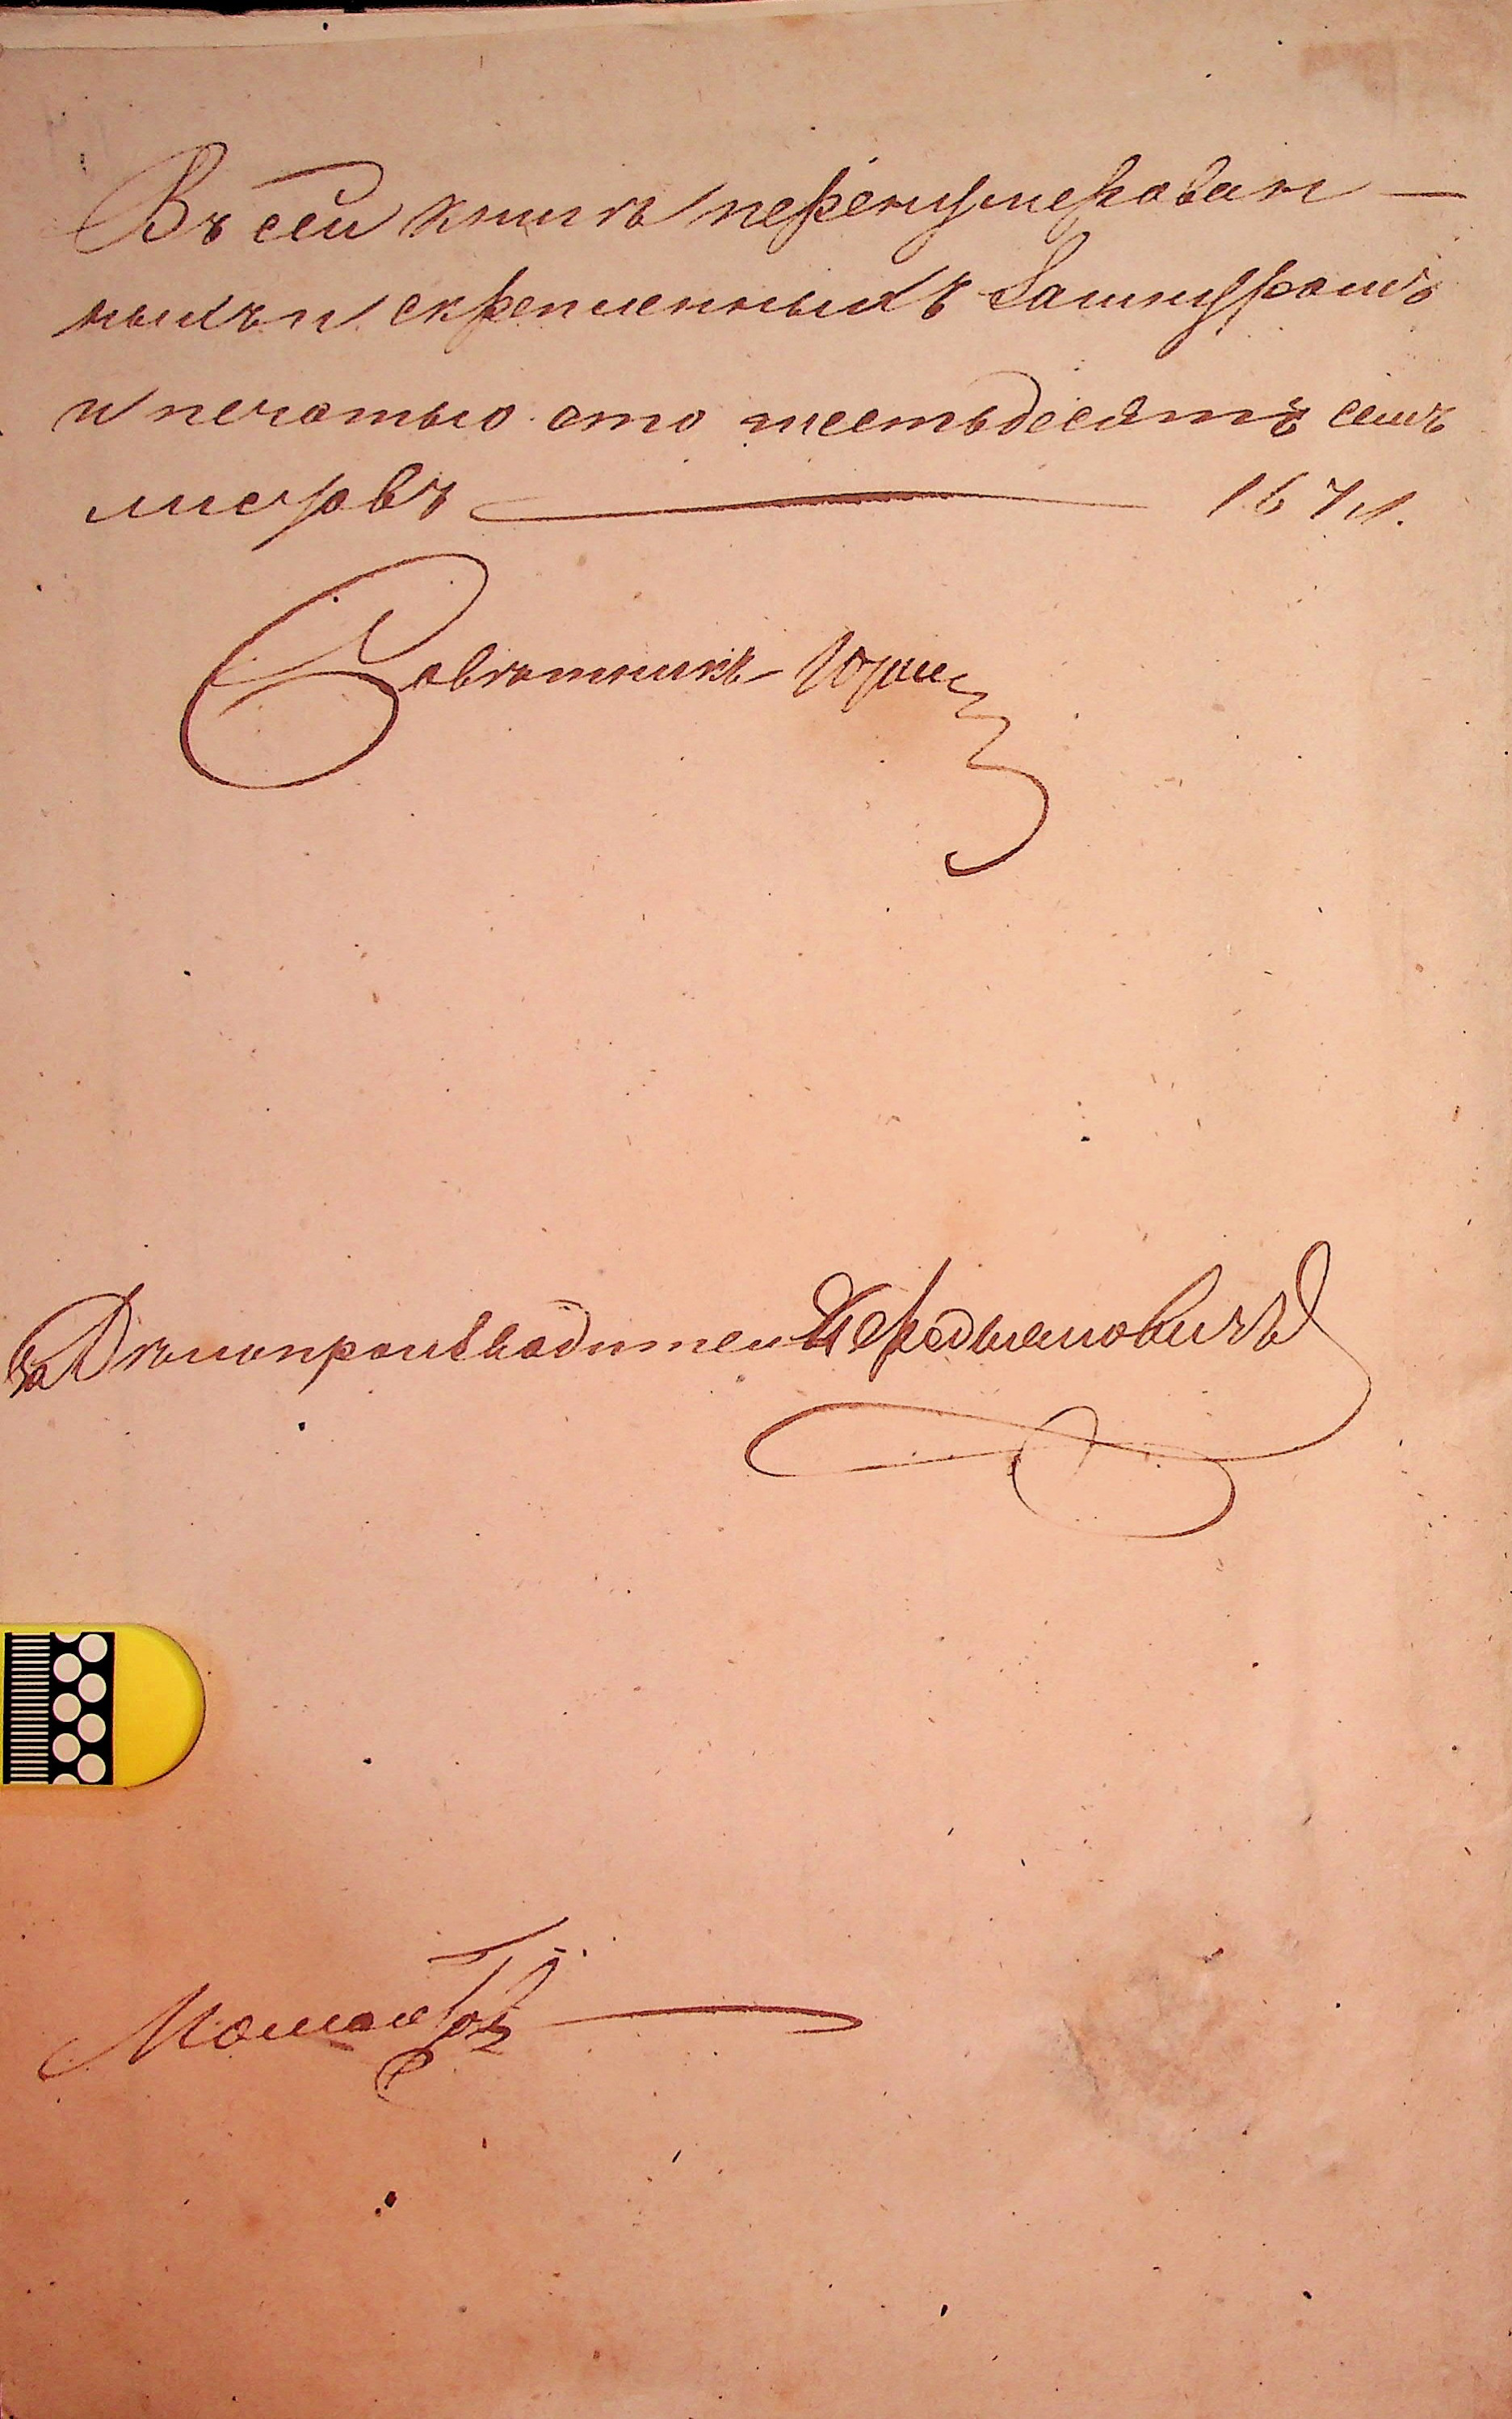 Въ сей книгѣ перенумерован—
ныхъ и скрепленныхъ зашнуромъ
и печатью сто шестьдесятъ семъ
листовъ — 167 л.
Совѣтникъ
За Дѣлопроизводителя